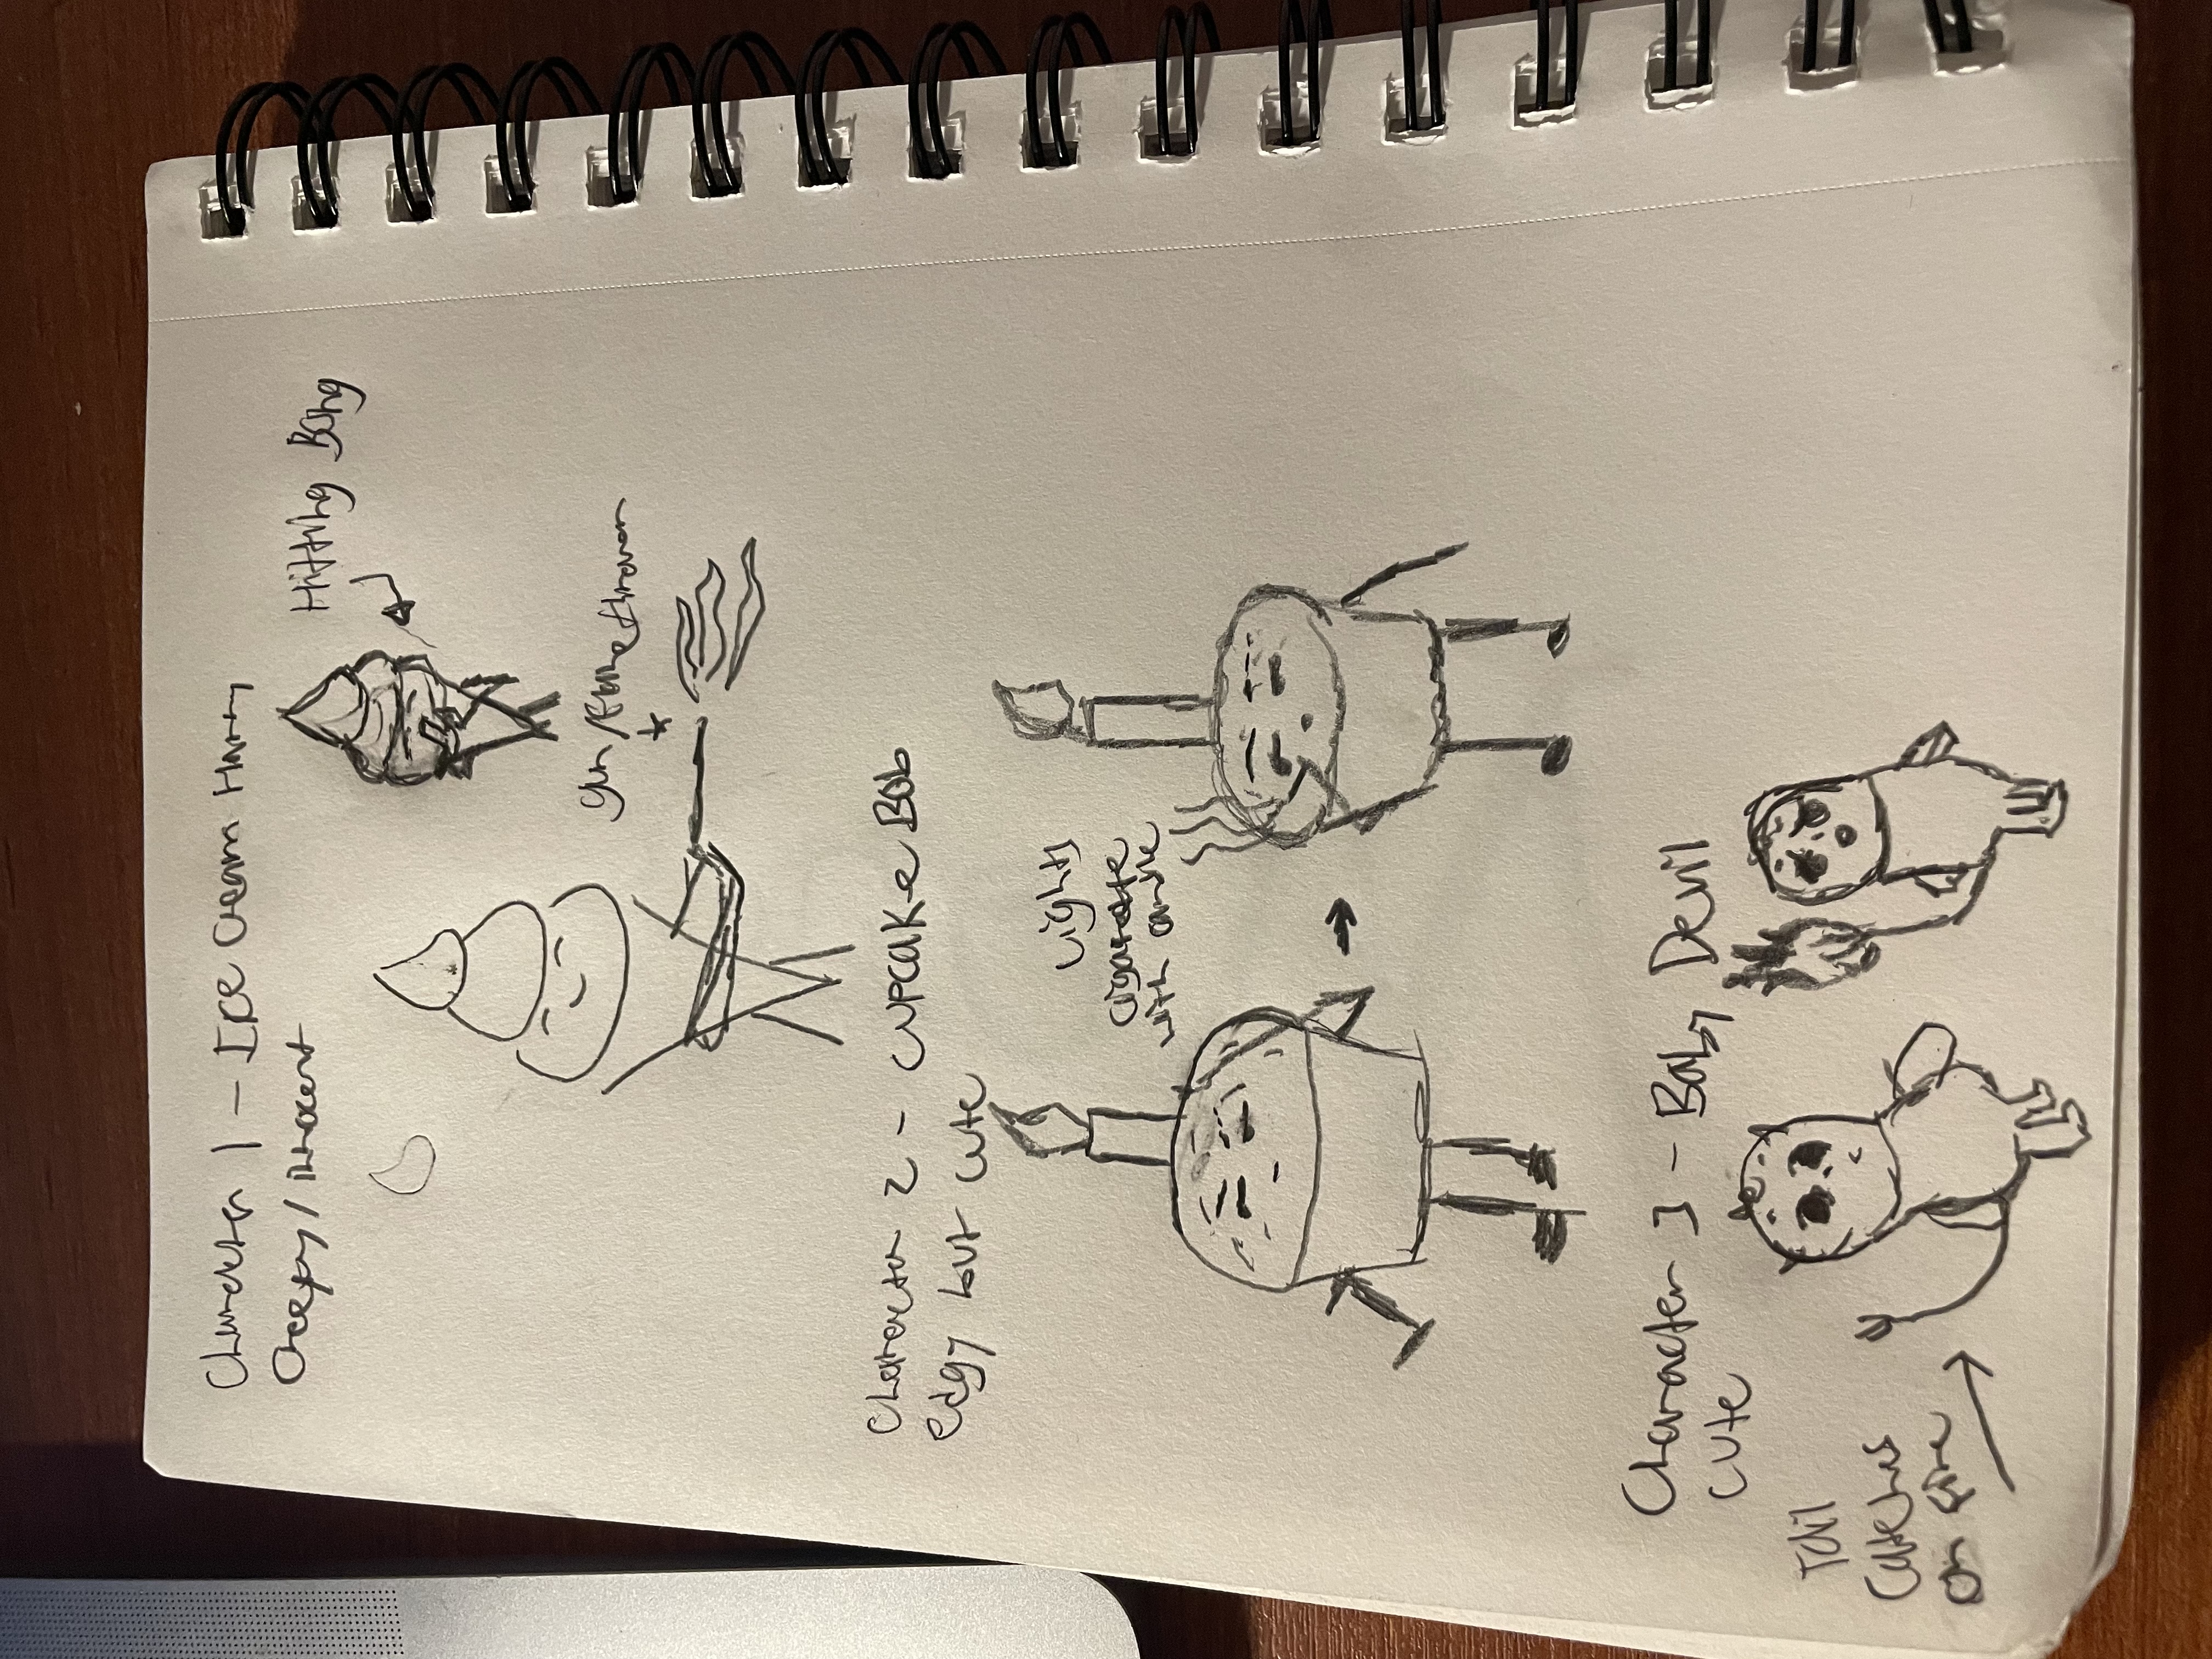 Character 1 - Ice Cream Harry
Creepy / innocent
Hitting Bong
gun / flame thrower
Character 2 - Cupcake Bob
edgy but cute
Lights
cigarette
with candle
Character 3 - Baby Devil
cute
Tail
Catches
on fire